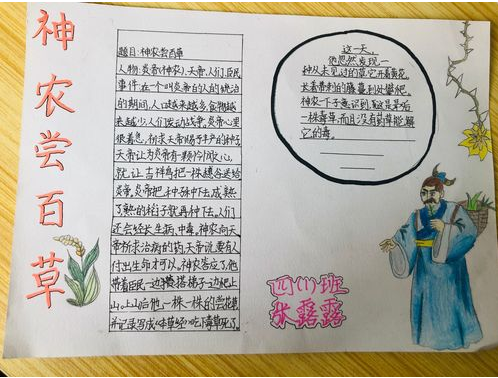 神农尝百草
题目:神农尝百草
人物:炎帝(神农)、天帝、人们、臣民
事件:在一个叫炎帝的人的统治
的期间,人口越来越多,食物越
来越少人们发动战争,炎帝心里
很着急,何求天帝赐于丰产的种子
天帝让为炎帝有一颗怜悯心,
就让吉祥鸟把一株穗谷送给
炎帝。炎帝把种子种下去,成熟
了熟的稻子就再种下去。人们
还会经长生病,中毒,神农向天
帝祈求治病的药,天帝说要有人
付出生命才可以。神农答应了,他
带着臣民一边搭梯子一边爬上
山。上山后他一株一株的尝花草
并记录写成《本草经》吃下毒草死了
这一天,
他忽然发现一
种从未见过的草,它开着黄花,
长着带刺的藤蔓到处攀爬。
神农一下子意识到,这是草呀
一株毒草,而且没有药草能解
它的毒。
四(1)班
朱露露